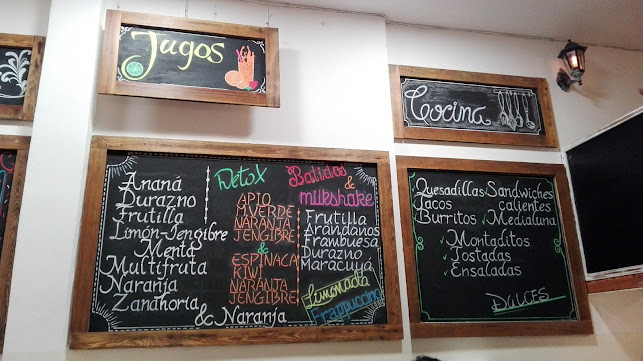 Jugos
Cocina
Ananá
Durazno
Frutilla
Limón-Jengibre
Menta
Multifruta
Naranja
Zanahoria & Naranja
Detox
APIO
M.VERDE
NARANJA
JENGIBRE
&
ESPINACA
KIWI
NARANJA
JENGIBRE
Batidos
&
milkshake
Frutilla
Arandanos
Frambuesa
Durazno
Maracuya
Limonada
Frappuccino
Quesadillas
Tacos
Burritos
Sandwiches
calientes
Medialuna
Montaditos
Tostadas
Ensaladas
DULCES